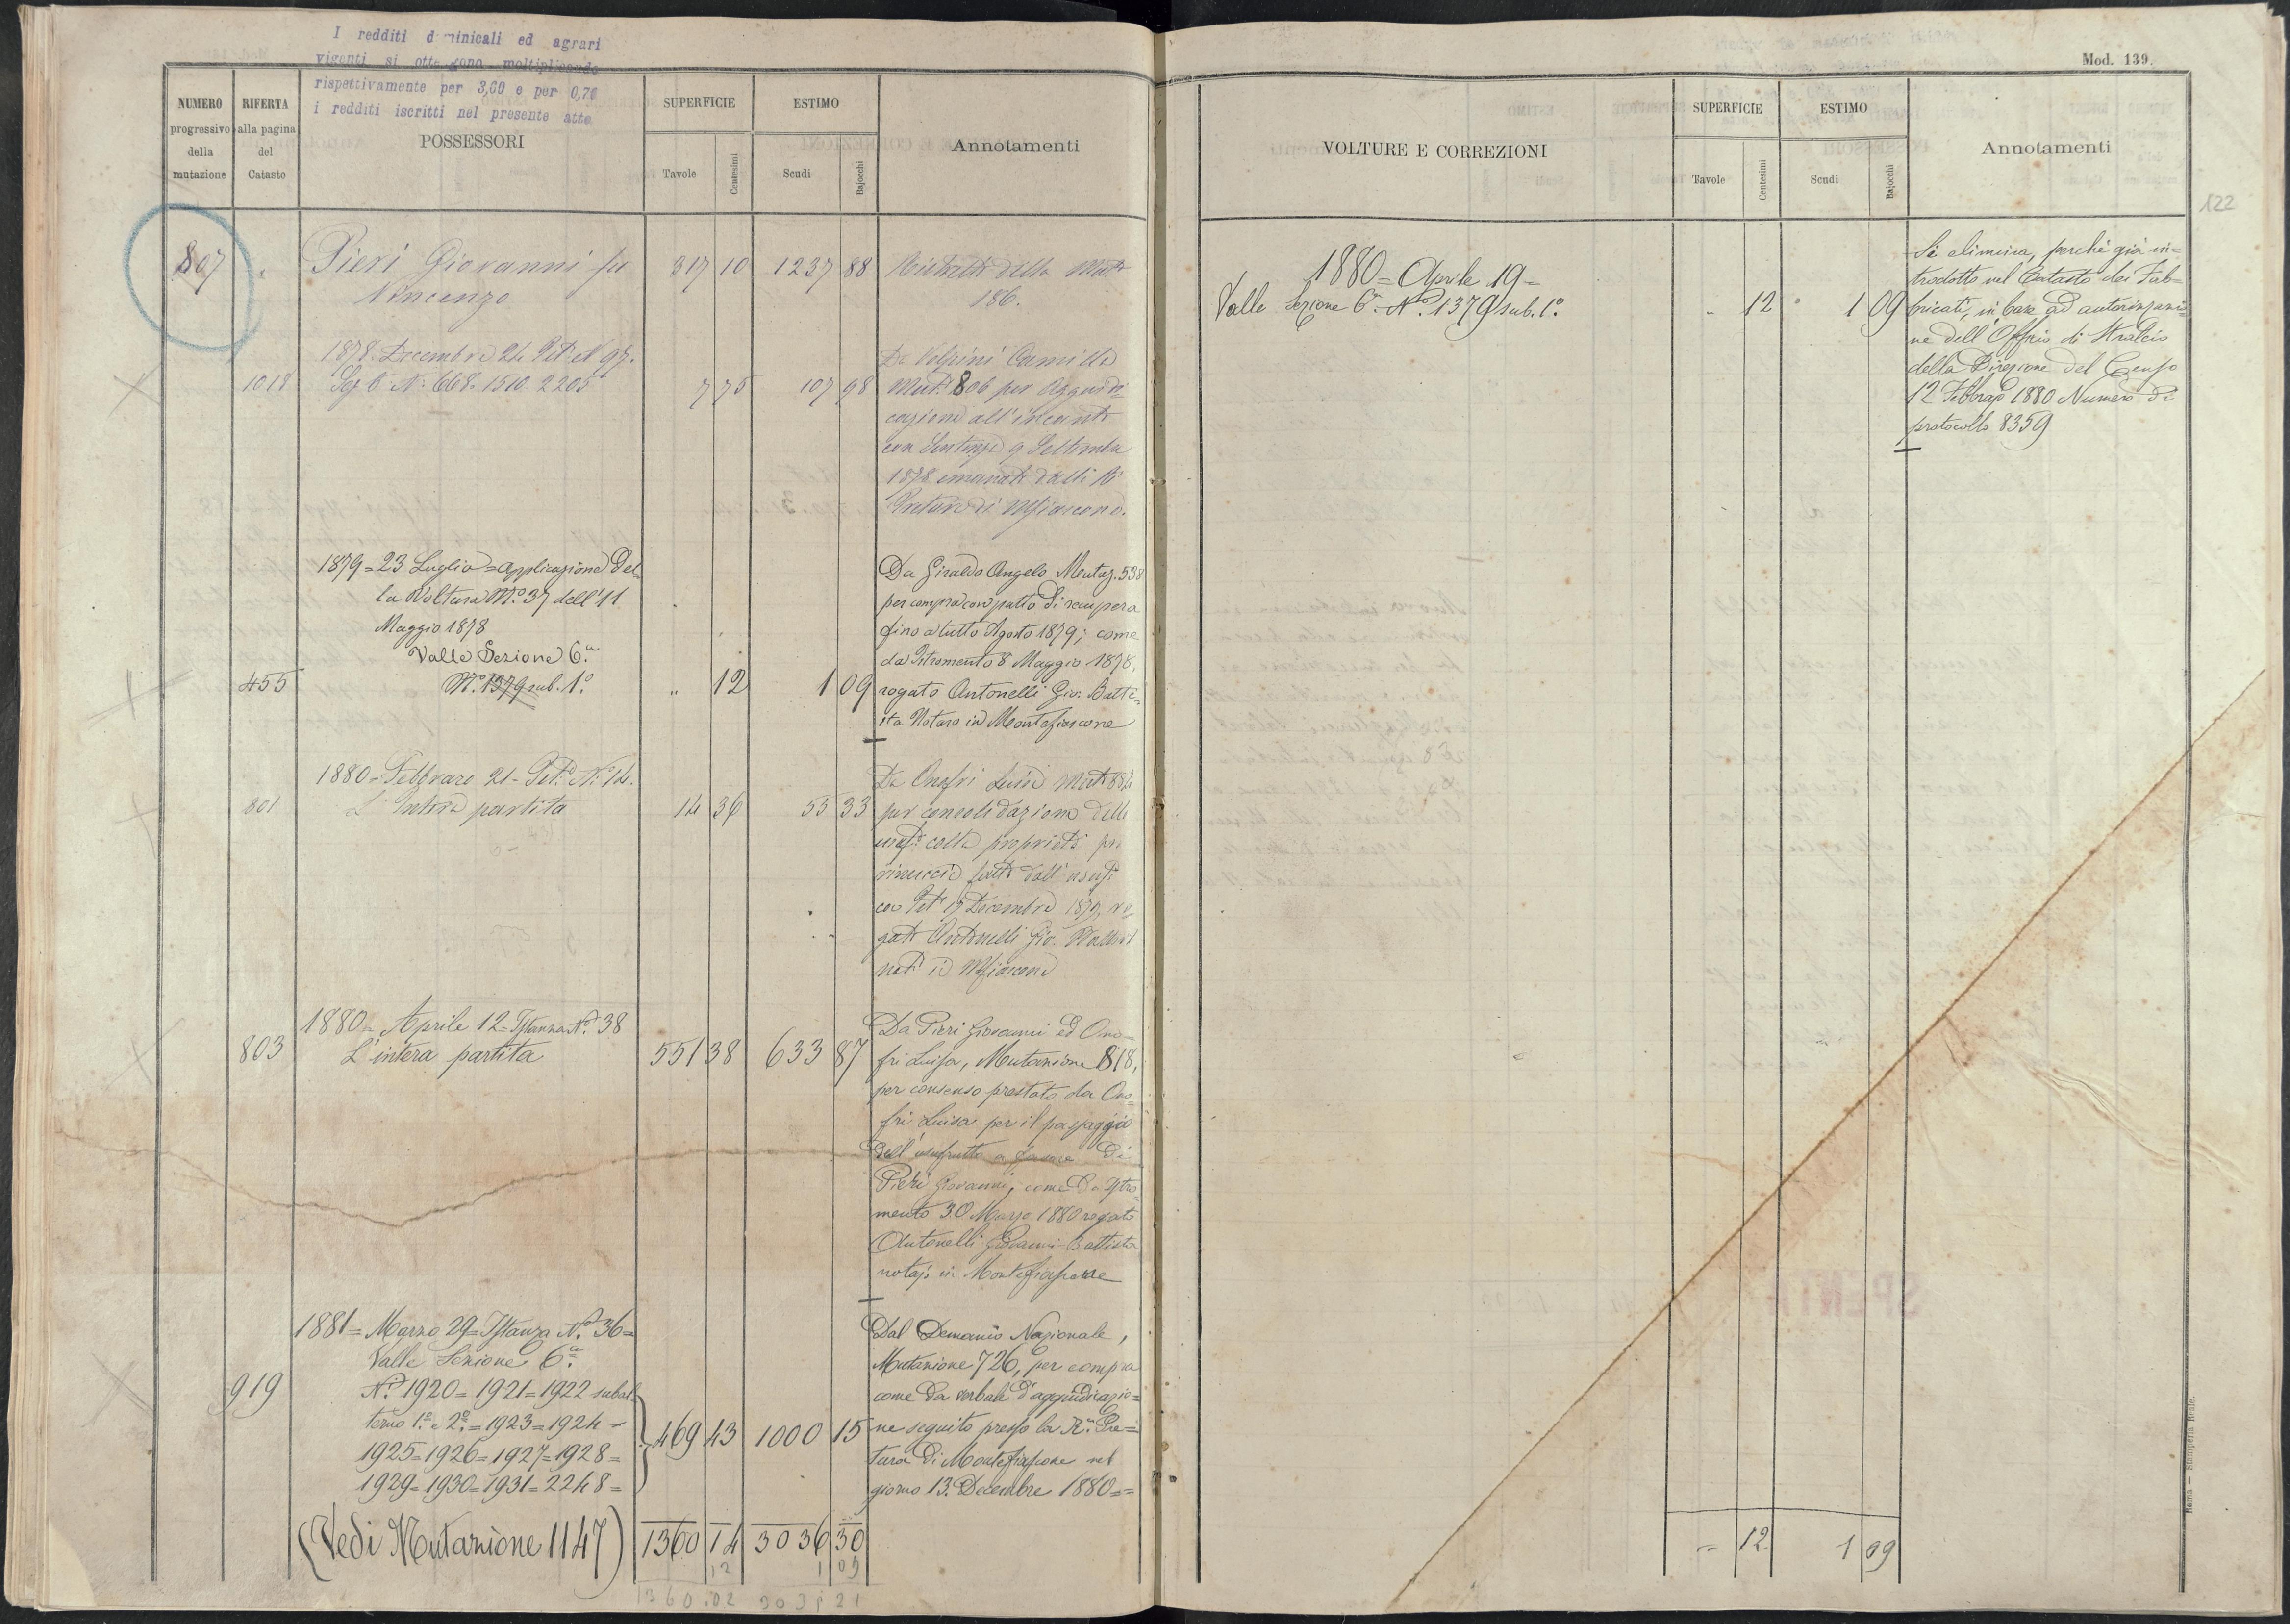 I redditi dominicali ed agrari
vigenti si ottengono moltiplicando
rispettivamente per 3,60 e per 0,70
i redditi iscritti nel presente atto
NUMERO
progressivo
della
mutazione
RIFERTA
alla pagina
del
Catasto
POSSESSORI
SUPERFICIE
Tavole
Centesimi
ESTIMO
Scudi
Bajocchi
Annotamenti
807
Pieri Giovanni fu
Vincenzo
317 10 1237 88
della Mut
186.
1878 Decembre 21 Pet. N 97.
1018
Sez 6 N. 668. 1510. 2205
7 75 107 98
Da Volpini Camilla
Mut. 806 per Aggiudi
cazione all'incanto
con Sentenza 9 Settembre
1878 emanata dalla R
Pretura di Mfiascone.
1879=23 Luglio=applicazione del
la Voltura N.o 37 dell'11
Maggio 1878
Valle Sezione 6.a
455
N.o 1379 sub. 1.o
" 12 1 09
Da Giraldo Angelo Mutaz. 538
per compra con patto di recupera
fino a tutto Agosto 1879; come
da Istromento 8 Maggio 1878,
rogato Antonelli Gio. Batti-
sta Notaro in Montefiascone
1880=Febbraro 21- Pet. N. 14.
801
L'Intera partita
14 36 53 33
Da Onofri Luisa Mut
per consolidazione della
usuf. colla proprietà per
rinuncia fatta dall'usuf
15 Decembre 1879, ro
gato Antonelli Gio. Battist
not. in Mfiascone
1880= Aprile 12=Istanza N.o 38
803
L'intera partita
551 38 633 87
Da Pieri Giovanni ed Ono-
fri Luisa, Mutazione 818,
per consenso prestato da Ono=
fri Luisa per il passaggio
dell'usufrutto a favore di
Pieri Giovanni, come da Istro=
mento 30 Marzo 1880 rogato
Antonelli Giovanni Battista
notajo in Montefiascone
1881= Marzo 29= Istanza N.o 36=
Valle Sezione 6.a
919
N.i 1920=1921=1922 subal
terno 1.o e 2.o=1923=1924=
1925=1926=1927=1928=
1929=1930=1931=2248=
469 43 1000 15
Dal Demanio Nazionale,
Mutazione 726, per compra
come da verbale d'aggiudicazio=
ne seguito presso la R.a Pre=
tura di Montefiascone nel
giorno 13. Decembre 1880==
(Vedi Mutazione 1147)
1360 14 3036 30
12 1 09
1360.02 303 21
Mod. 139.
VOLTURE E CORREZIONI
SUPERFICIE
Tavole
Centesimi
ESTIMO
Scudi
Bajocchi
Annotamenti
122
1880= Aprile 19=
Valle Sezione 6.a N.o 1379 sub. 1.o
" 12 1 09
Si elimina, perchè già in=
trodotto nel Catasto dei Fab=
bricati, in base ad autorizzazio=
ne dell'Offizio di Stralcio
della Direzione del Censo
12 Febbrajo 1880 Numero di
protocollo 8359
" 12 1 09
Roma — Stamperia Reale.